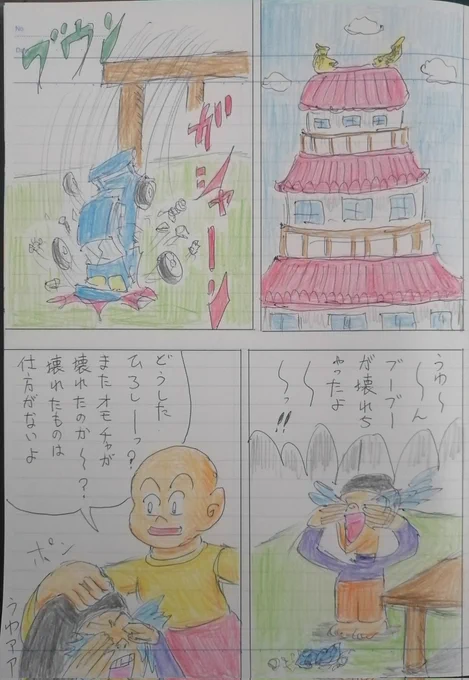 ブウン
ガシャーン
うゅ〜〜ん
ブーブー
が壊れち
ゃったよ
〜〜っ!!
どうした
ひろしーっ?
またオモチャが
壊れたのか〜?
壊れたものは
仕方がないよ
ポン
うわァァ